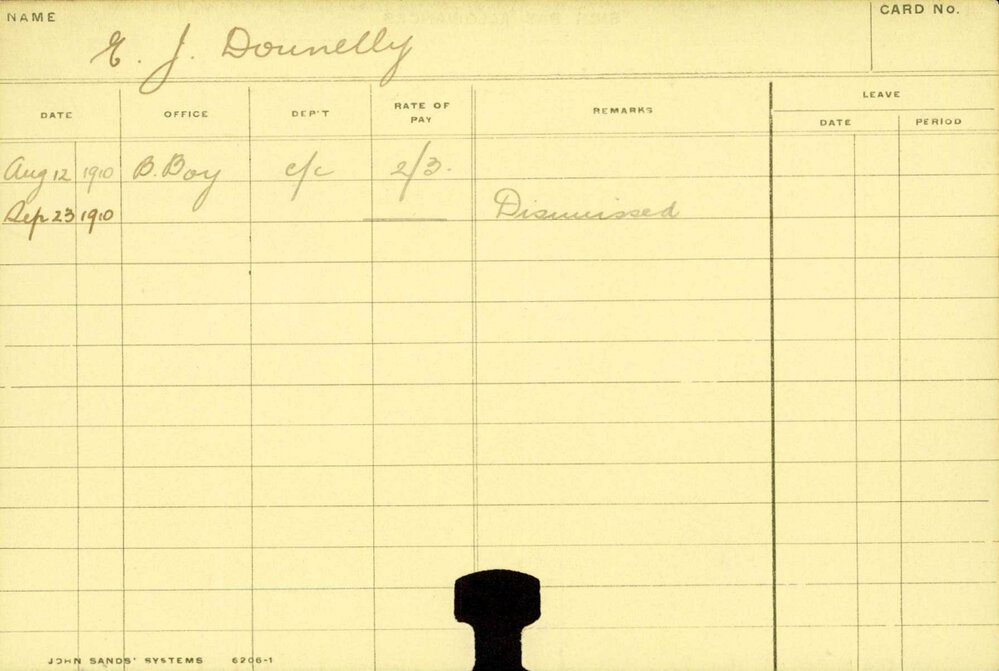 NAME
CARD No.
E. J. Dounelly
DATE OFFICE DEP'T RATE OF PAY REMARKS LEAVE
DATE PERIOD
Aug 12 1910 B. Boy c/c 2/3.
Sep 23 1910 Dismissed
JOHN SANDS' SYSTEMS 6206-1